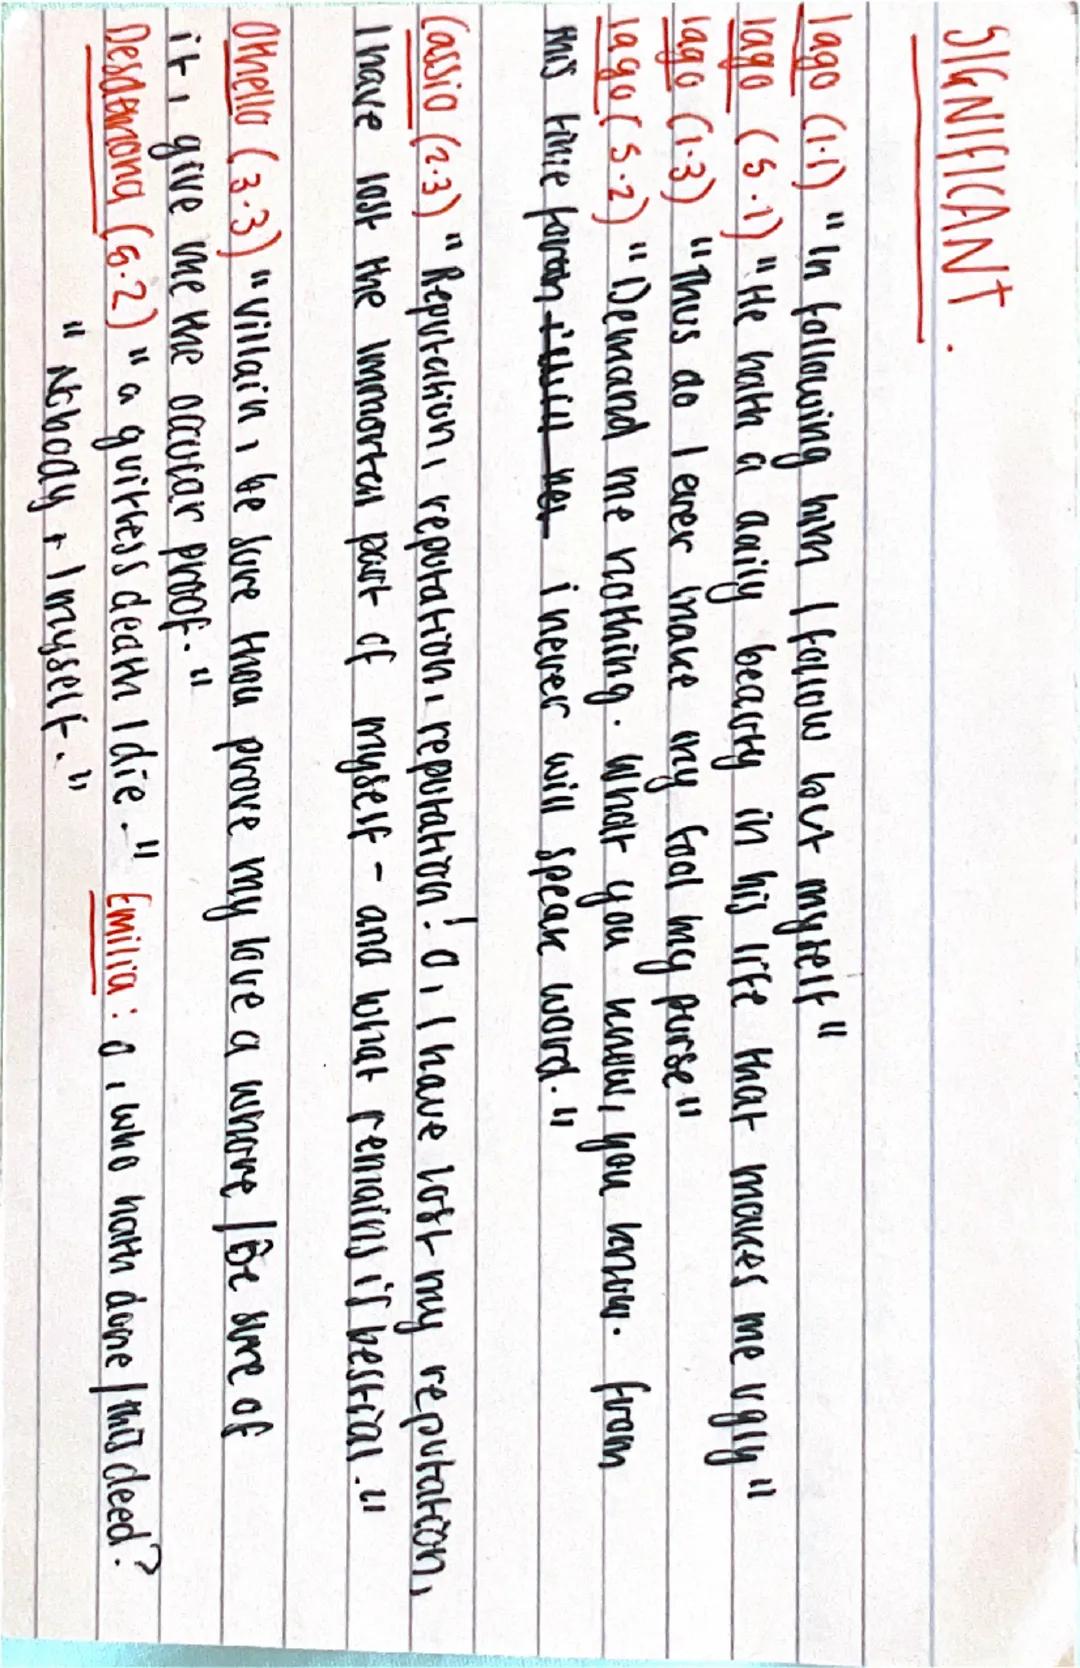 SIGNIFICANT.
Iago (1.1) "In following him I follow but myself"
Iago (5.1) "He hath a daily beauty in his life that makes me ugly"
Iago (1.3) "Thus do I ever make my fool my purse"
Iago (5.2) "Demand me nothing. What you know, you know. From
this time i never will speak word."
Cassio (2.3) "Reputation, reputation, reputation! O, I have lost my reputation,
I have lost the immortal part of myself - and what remains if bestial."
Othello (3.3) "Villain, be sure thou prove my love a whore / Be sure of
it, give me the occular proof."
Desdemona (5.2) "a guitless death I die." Emilia: O, who hath done / this deed?
"Nobody + I myself."